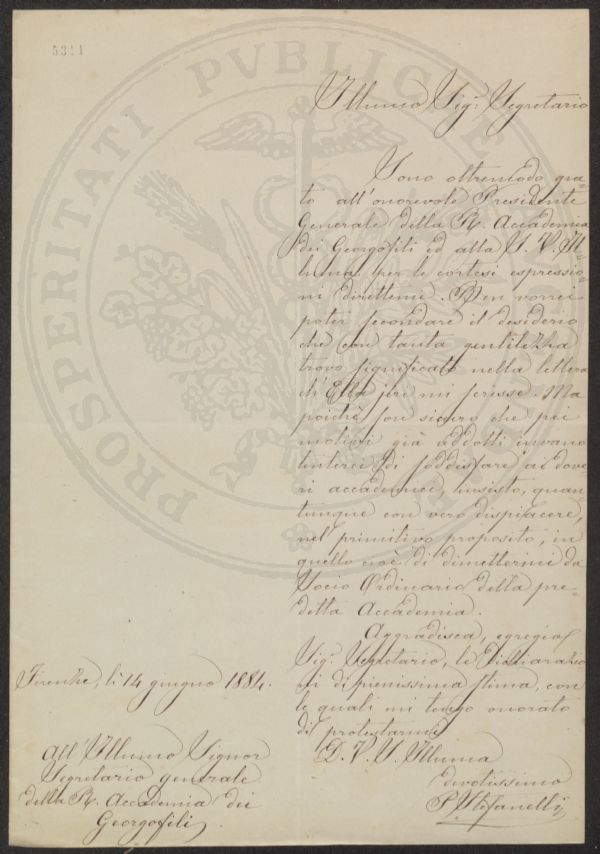 5341
PROSPERITATI PVBLICAE
Illumo Sigr. Segretario
Sono oltremodo gra-
to all'onorevole Presidente
Generale della R. Accademia
dei Georgofili ed alla S. V. Il-
luma. per le cortesi espressio-
ni direttemi. Ben vorrei
poter secondare il desiderio
che con tanta gentilezza
trovo significato nella lettera
ch'Ella jeri mi scrisse. Ma
poichè son sicuro che pei
motivi già addotti invano
tenterei di soddisfare ai dove-
ri accademici, insisto, quan-
tunque con vero dispiacere,
nel primitivo proposito, in
quello cioè di dimettermi da
Socio Ordinario della pre-
detta Accademia.
Aggradisca, egregio
Sigr. Segretario, le dichiarazio-
ni di pienissima stima, con
le quali mi tengo onorato
di protestarmi
D. V. S. Illuma
devotissimo
P. Stefanelli
Firenze, lì 14 giugno 1884.
All'Illumo Signor
Segretario generale
della R. Accademia dei
Georgofili.